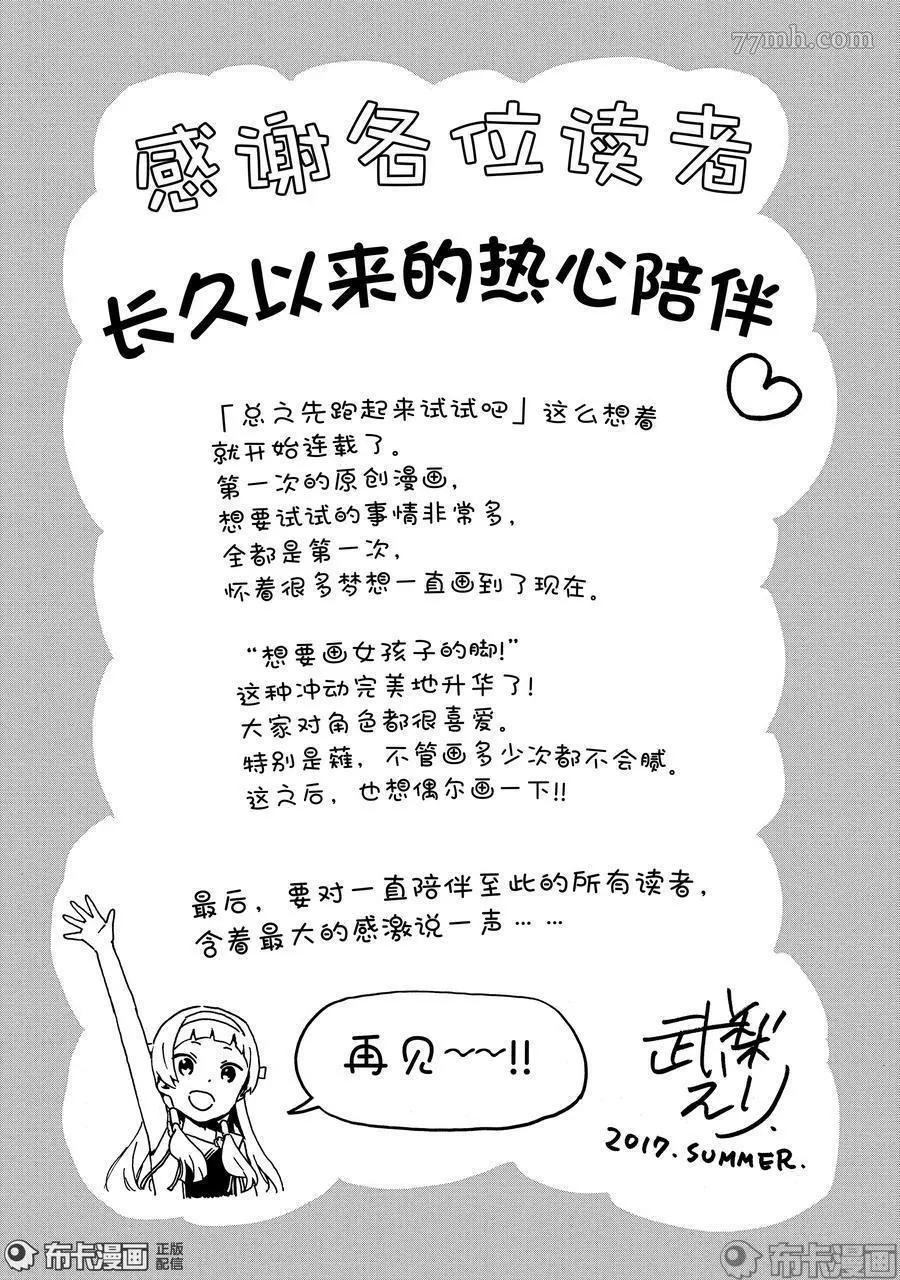 77mh.com
感谢各位读者
长久以来的热心陪伴
「总之先跑起来试试吧」这么想着
就开始连载了。
第一次的原创漫画，
想要试试的事情非常多，
全都是第一次，
怀着很多梦想一直画到了现在。
“想要画女孩子的脚!”
这种冲动完美地升华了!
大家对角色都很喜爱。
特别是薙，不管画多少次都不会腻。
这之后，也想偶尔画一下!!
最后，要对一直陪伴至此的所有读者，
含着最大的感激说一声……
再见~~!!
武梨えり
2017. SUMMER.
布卡漫画 正版配信
布卡漫画